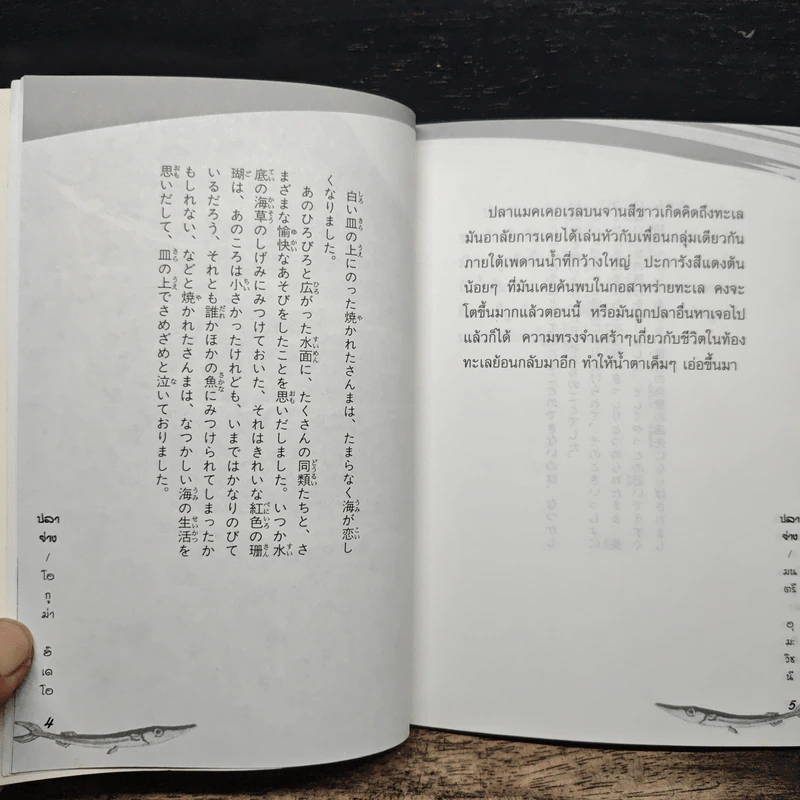 白い皿の上にのった焼かれたさんまは、たまらなく海が恋し
くなりました。
あのひろびろと広がった水面に、たくさんの同類たちと、さ
まざまな愉快なあそびをしたことを思いだしました。いつか水
底の海草のしげみにみつけておいた、それはきれいな紅色の珊
瑚は、あのころは小さかったけれども、いまではかなりのびて
いるだろう、それとも誰かほかの魚にみつけられてしまったか
もしれない、などと焼かれたさんまは、なつかしい海の生活を
思いだして、皿の上でさめざめと泣いておりました。
ปลาย่าง / โอกุม่า ฮิเดโอ
4
ปลาแมคเคอเรลบนจานสีขาวเกิดคิดถึงทะเล
มันอาลัยการเคยได้เล่นหัวกับเพื่อนกลุ่มเดียวกัน
ภายใต้เพดานน้ำที่กว้างใหญ่ ปะการังสีแดงต้น
น้อยๆ ที่มันเคยค้นพบในกอสาหร่ายทะเล คงจะ
โตขึ้นมากแล้วตอนนี้ หรือมันถูกปลาอื่นหาเจอไป
แล้วก็ได้ ความทรงจำเศร้าๆเกี่ยวกับชีวิตในท้อง
ทะเลย้อนกลับมาอีก ทำให้น้ำตาเค็มๆ เอ่อขึ้นมา
ปลาย่าง / มนตรี อุมะวิชนี
5